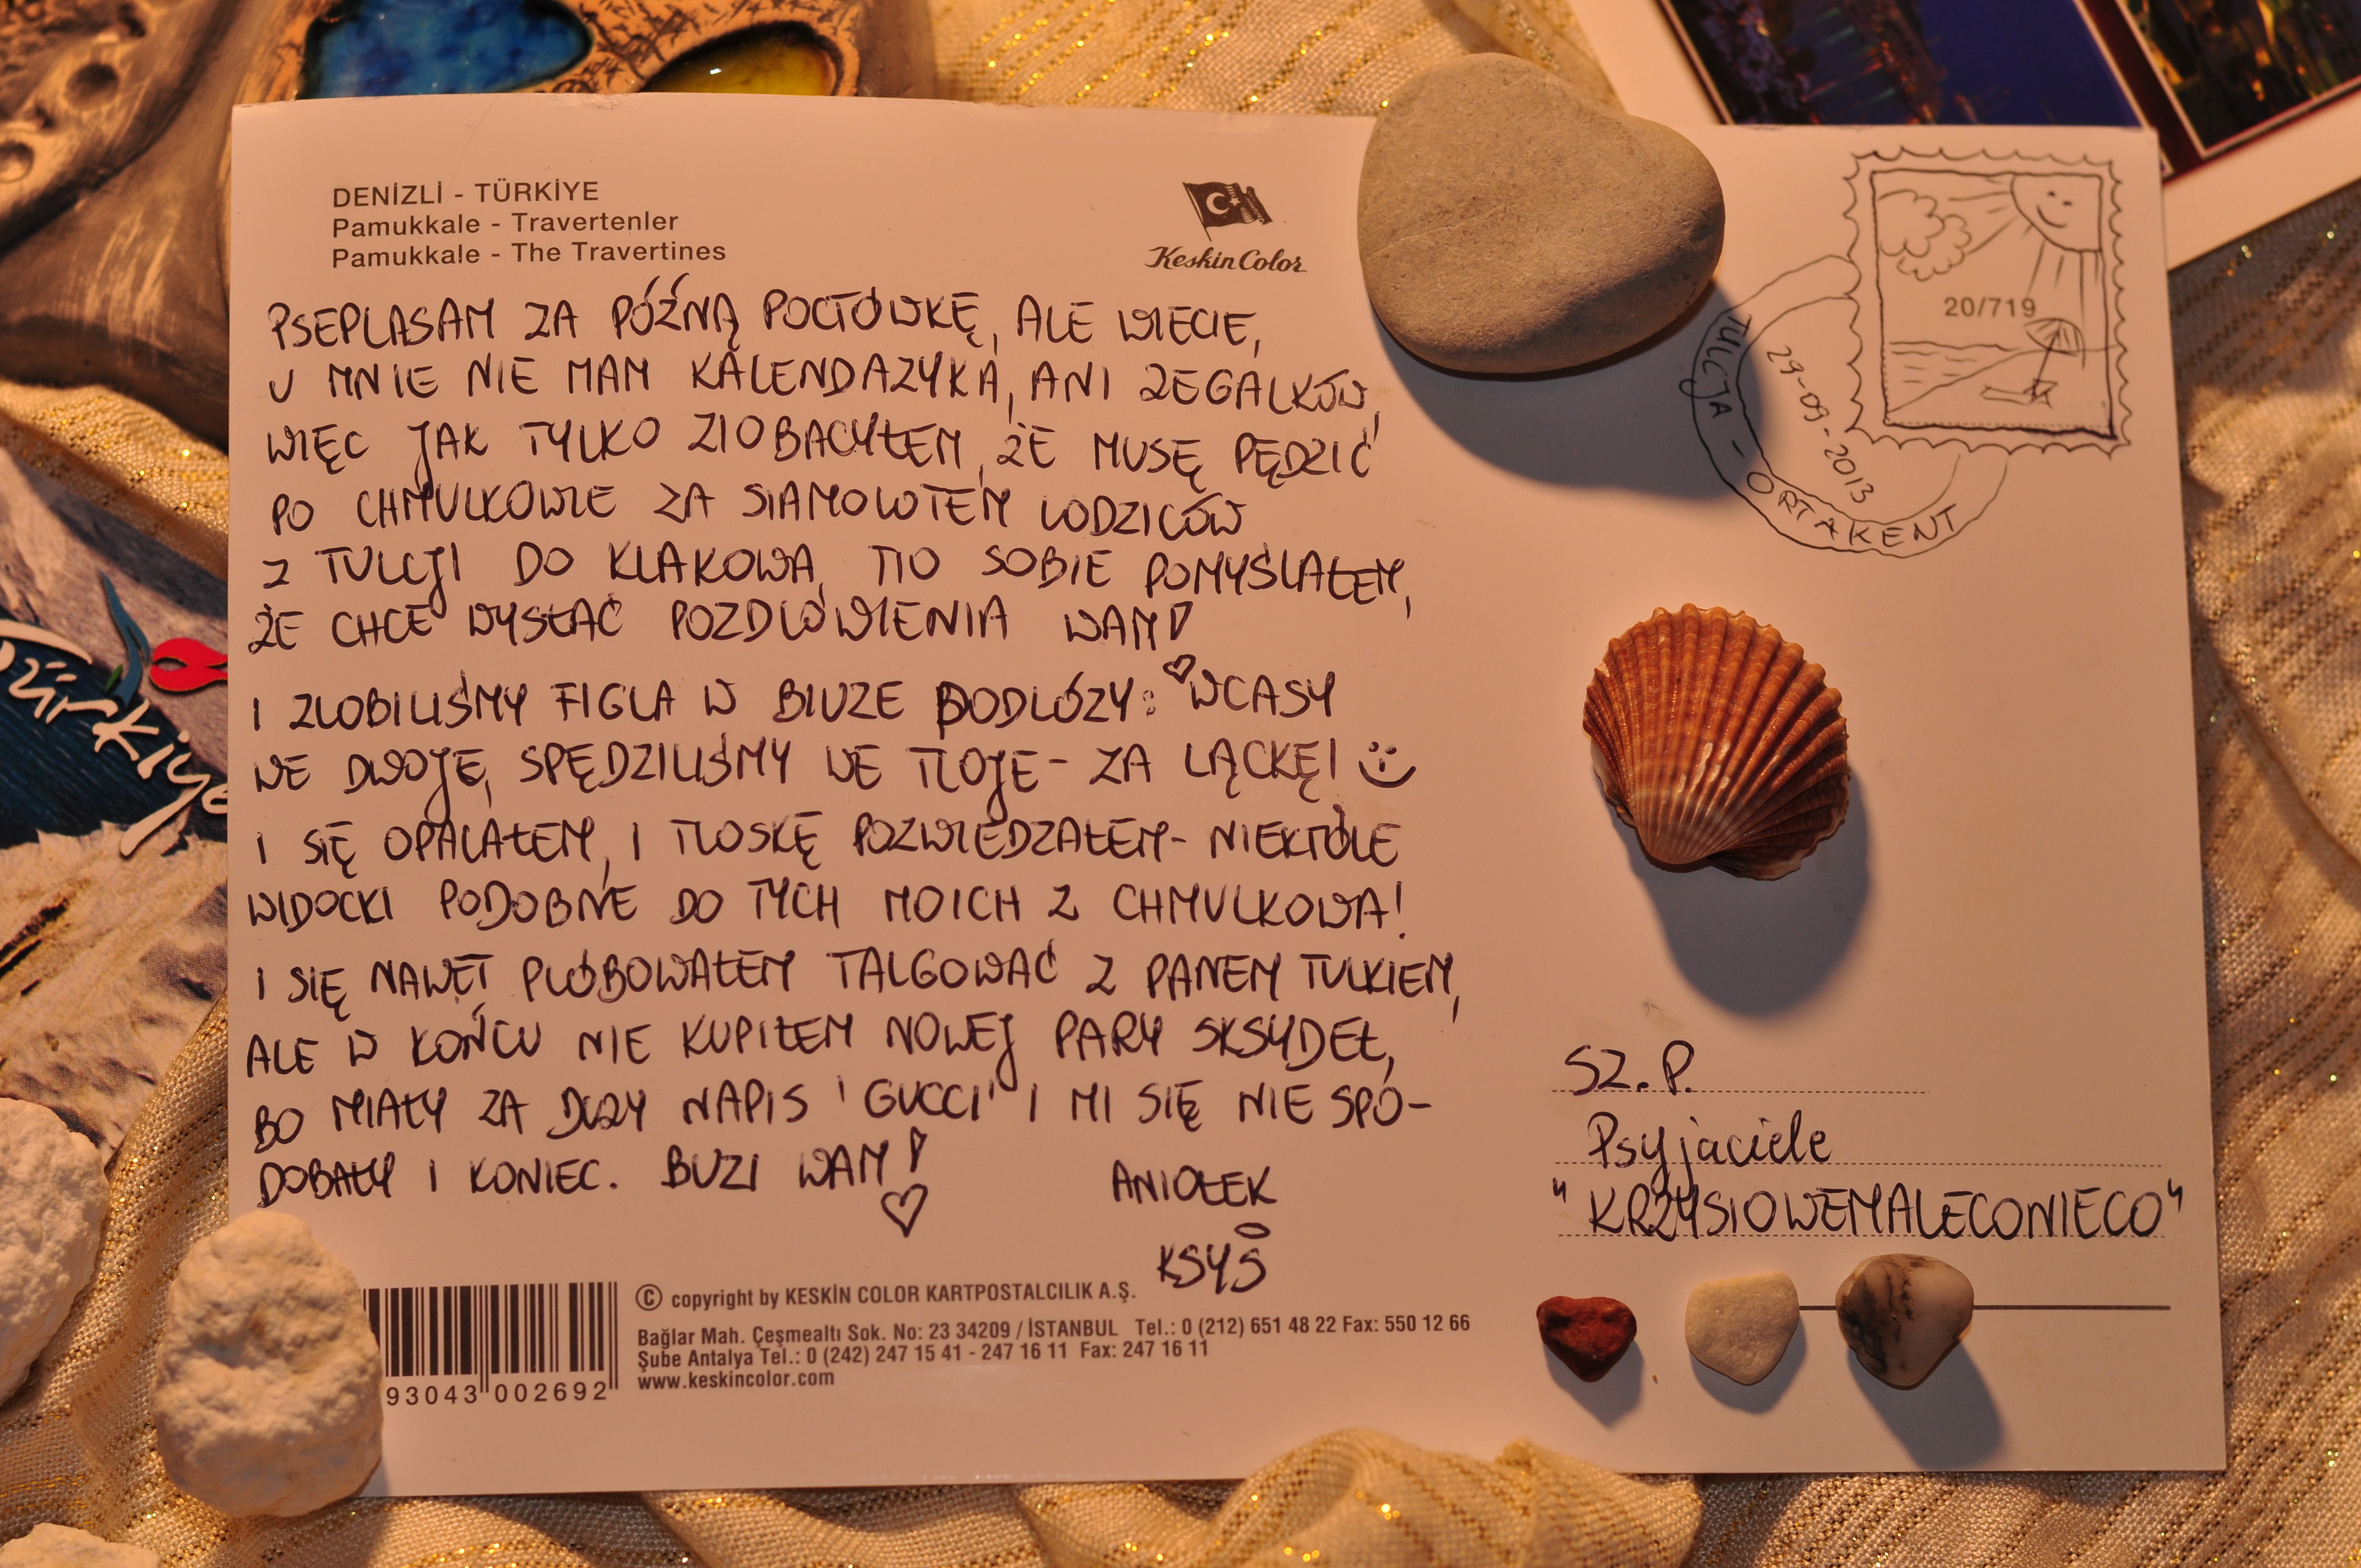 DENİZLİ - TÜRKİYE
Pamukkale - Travertenler
Pamukkale - The Travertines
Keskin Color
PSEPLASAM ZA PÓŹNĄ POCTÓWKĘ, ALE WIECIE,
U MNIE NIE MAM KALENDAZYKA, ANI ZEGALKÓW,
WIĘC JAK TYLKO ZIOBACYŁEM, ŻE MUSĘ PĘDZIĆ
PO CHMULKOWIE ZA SIAMOLOTEM LODZICÓW
Z TULCJI DO KLAKOWA, TIO SOBIE POMYŚLAŁEM,
ŻE CHCE WYSŁAĆ POZDLOWIENIA WAM!
I ZLOBILIŚMY FIGLA W BIUZE PODLÓZY: WCASY
WE DWOJE, SPĘDZILIŚMY WE TLOJE - ZA LĄCKĘ!
I SIĘ OPALAŁEM, I TLOSKĘ POZWIEDZAŁEM - NIEKTÓLE
WIDOCKI PODOBNE DO TYCH MOICH Z CHMULKOWA!
I SIĘ NAWET PLÓBOWAŁEM TALGOWAĆ Z PANEM TULKIEM,
ALE W KOŃCU NIE KUPIŁEM NOWEJ PARY SKSYDEŁ,
BO MIAŁY ZA DUZY NAPIS 'GUCCI' I MI SIĘ NIE SPO-
DOBAŁY I KONIEC. BUZI WAM!
ANIOŁEK
KSYŚ
20/719
TULCJA - ORTAKENT
29-09-2013
SZ. P.
Psyjaciele
"KRZYSIOWEMALECONIECO"
93043 002692
© copyright by KESKİN COLOR KARTPOSTALCILIK A.Ş.
Bağlar Mah. Çeşmealtı Sok. No: 23 34209 / İSTANBUL Tel.: 0 (212) 651 48 22 Fax: 550 12 66
Şube Antalya Tel.: 0 (242) 247 15 41 - 247 16 11 Fax: 247 16 11
www.keskincolor.com
Türkiye